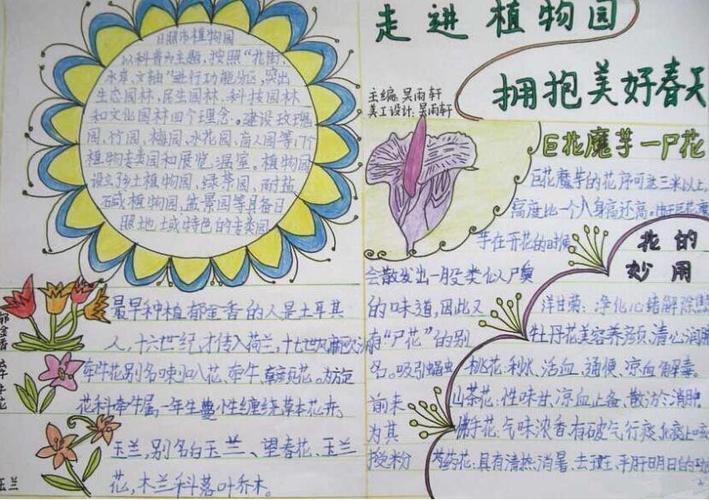 走进植物园
拥抱美好春天
主编:吴雨轩
美工设计:吴雨轩
日照市植物园
以科普为主题,按照"花街、
水岸、文轴"进行功能分区,突出
生态园林、民生园林、科技园林
和文化园林四个理念。建设玫瑰
园、竹园、梅园、水花园、盲人园等17个
植物专类园和展览、温室。植物园
设立乡土植物园、绿茶园、耐盐
碱植物园、盆景园等具备日
照地域特色的专类园
最早种植郁金香的人是土耳其
人,十六世纪,才传入荷兰,十七世
牵牛花别名喇叭花、牵牛、
花科牵牛属,一年生蔓性缠绕草本花卉。
玉兰,别名白玉兰、望春花、玉兰
花,木兰科落叶乔木。
郁金香
牵牛花
玉兰
巨花魔芋一尸花
巨花魔芋的花序可达三米以上,
高度比一个人身高还高。由于巨花魔
芋在开花的时候
会散发出一股类似尸臭
的味道,因此又
有"尸花"的别
名。吸引蝇虫
前来
为其
授粉
花的
妙用
洋甘菊:净化心绪解除
牡丹花美容养颜,清心润肺
桃花:利水、活血、通便、凉血解毒。
山茶花:性味甘、凉血止备、散淤消肿
佛手花:气味浓香,有破气行痰
芍药花:具有清热消暑、去斑、平肝明目的功